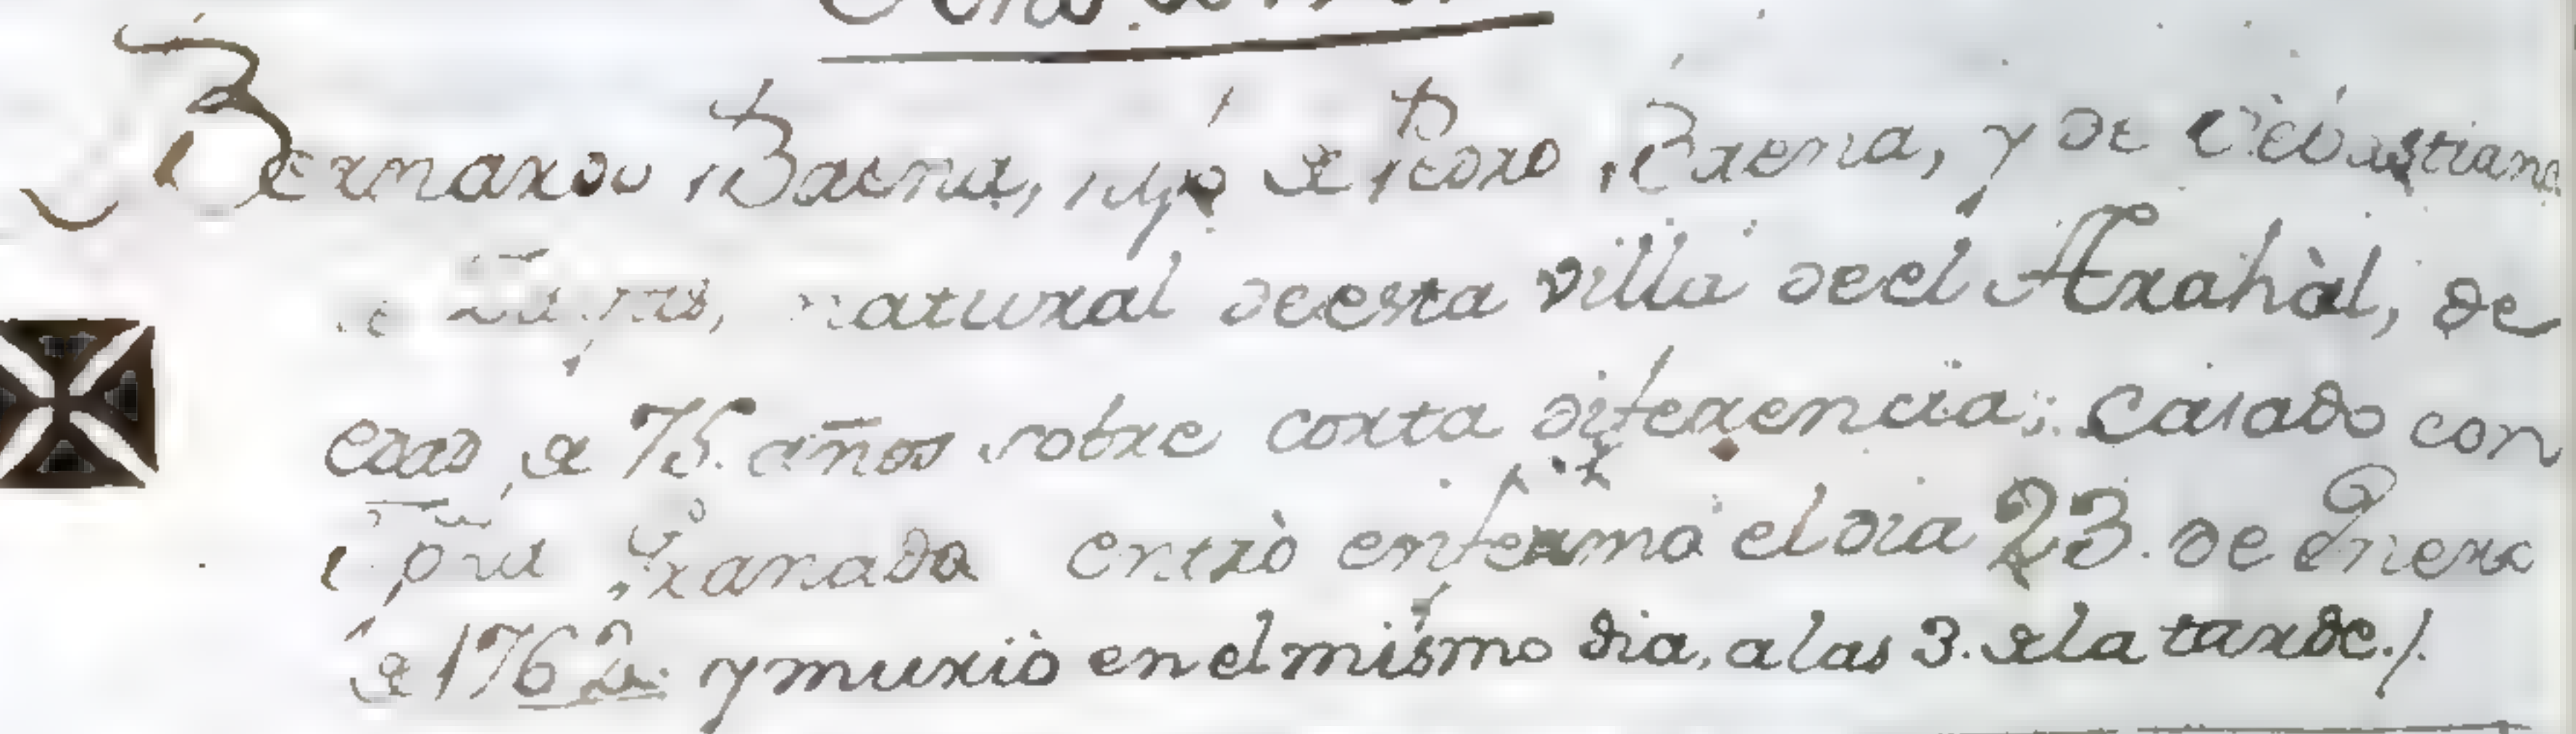 Bernardo Baena, hijo de Pedro Baena, y de Sebastiana
de natural deesta villa deel Arahàl, de
edad de 75. años sobre corta diferencia; casado con
Granada entrò enfermo el dia 23. de Enero
de 1762 y muriò en el mismo dia, a las 3. de la tarde./.